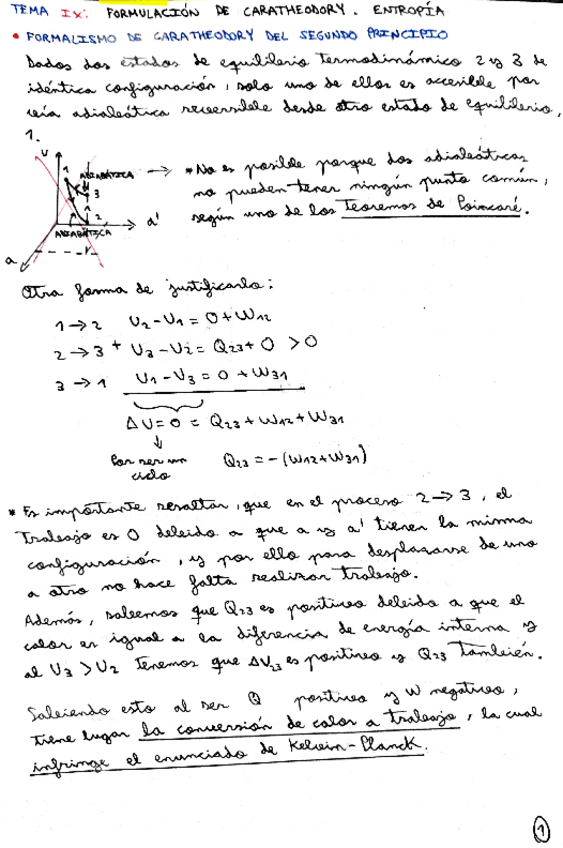 TEMA IX: FORMULACIÓN DE CARATHEODORY. ENTROPÍA
• FORMALISMO DE CARATHEODORY DEL SEGUNDO PRINCIPIO
Dados dos estados de equilibrio termodinámico 2 y 3 de
idéntica configuración, solo uno de ellos es accesible por
vía adiabática reversible desde otro estado de equilibrio,
1.
U
1
ADIABÁTICA
3
2
ADIABÁTICA
a'
a
→ *No es posible porque dos adiabáticas
no pueden tener ningún punto común,
según uno de los Teoremas de Poincaré.
Otra forma de justificarlo:
1→2 U2-U1=0+W12
2→3 + U3-U2=Q23+0 >0
3→1 U1-U3=0+W31
ΔU=0=Q23+W12+W31
↓
Por ser un
ciclo
Q23=-(W12+W31)
* Es importante resaltar, que en el proceso 2→3, el
trabajo es 0 debido a que a y a' tienen la misma
configuración, y por ello para desplazarse de uno
a otro no hace falta realizar trabajo.
Además, sabemos que Q23 es positivo debido a que el
calor es igual a la diferencia de energía interna y
al U3>U2 tenemos que ΔU23 es positivo y Q23 también.
Sabiendo esto al ser Q positivo y W negativo,
tiene lugar la conversión de calor a trabajo, la cual
infringe el enunciado de Kelvin-Planck.
1